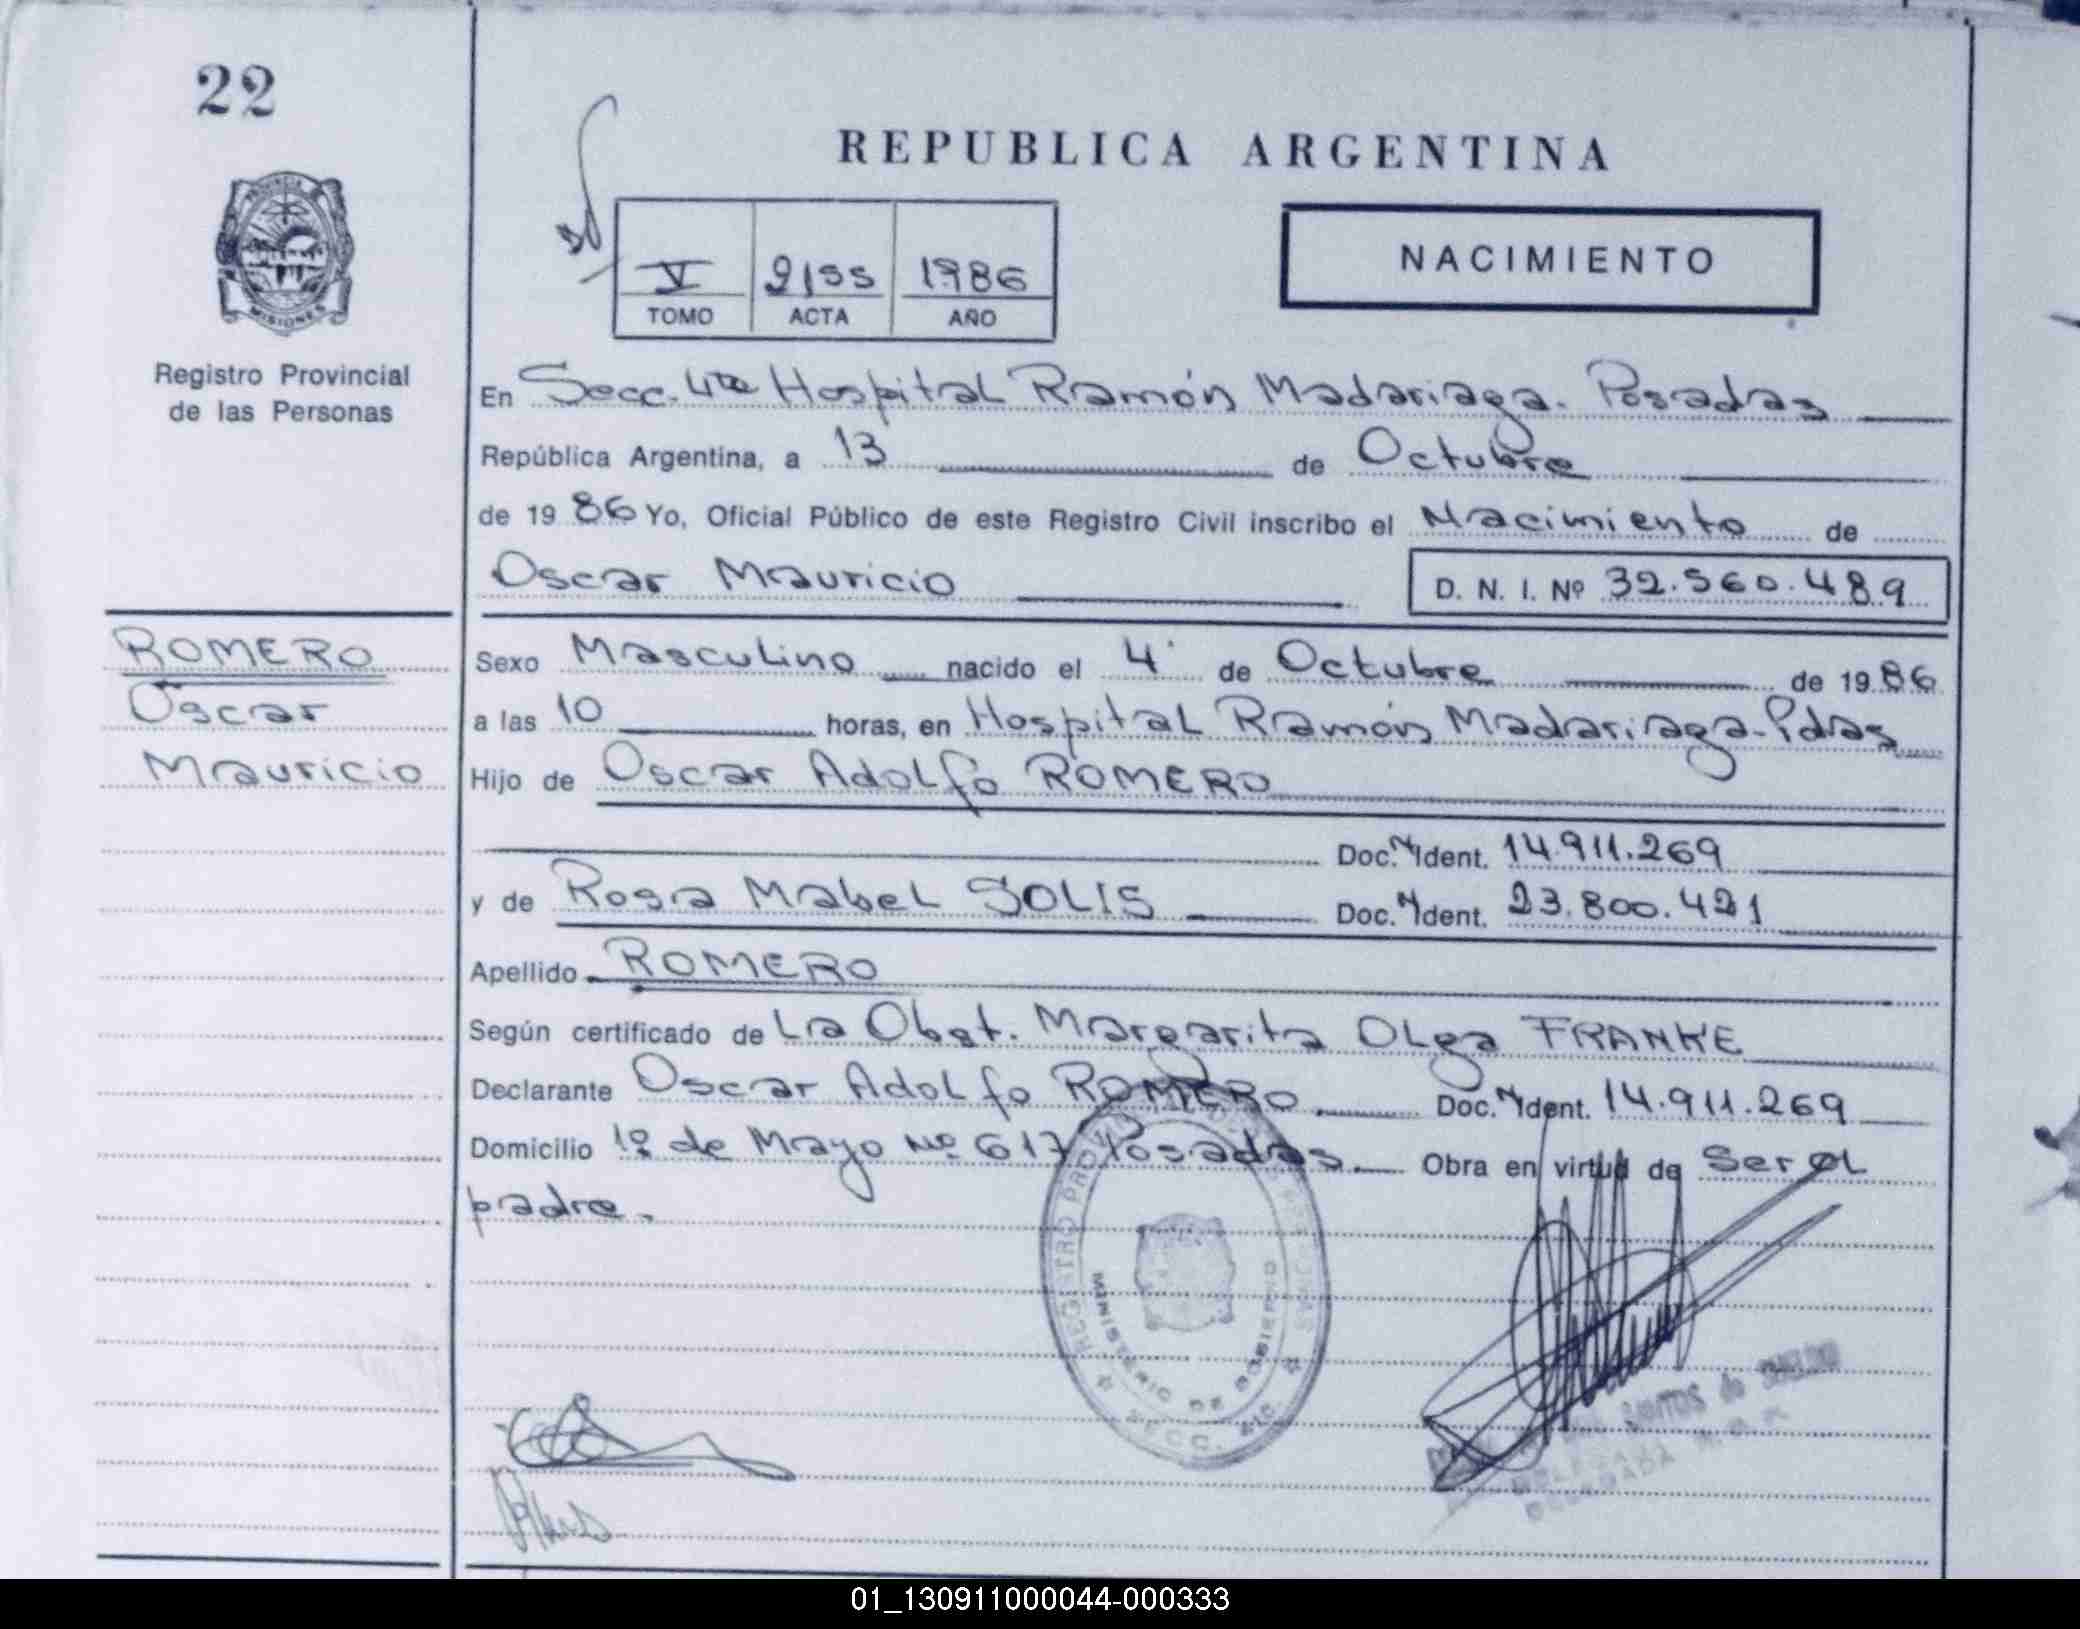 22
REPUBLICA ARGENTINA
PROVINCIA
MISIONES
Registro Provincial
de las Personas
V 2155 1986
TOMO ACTA AÑO
NACIMIENTO
En Secc. 4ta Hospital Ramón Madariaga. Posadas
República Argentina, a 13 de Octubre
de 1986 Yo, Oficial Público de este Registro Civil inscribo el Nacimiento de
Oscar Mauricio
D. N. I. Nº 32.560.489
ROMERO
Oscar
Mauricio
Sexo Masculino nacido el 4 de Octubre de 1986
a las 10 horas, en Hospital Ramón Madariaga-Pdas
Hijo de Oscar Adolfo ROMERO
Doc. N Ident. 14.911.269
y de Rosa Mabel SOLIS Doc. N Ident. 23.800.421
Apellido ROMERO
Según certificado de La Obst. Margarita Olga FRANKE
Declarante Oscar Adolfo ROMERO Doc. N Ident. 14.911.269
Domicilio 1º de Mayo Nº 617 Posadas Obra en virtud de Ser el
padre.
REGISTRO
MINISTERIO DE GOBIERNO
SECC.
SANTOS de
DELEGADA
01_130911000044-000333